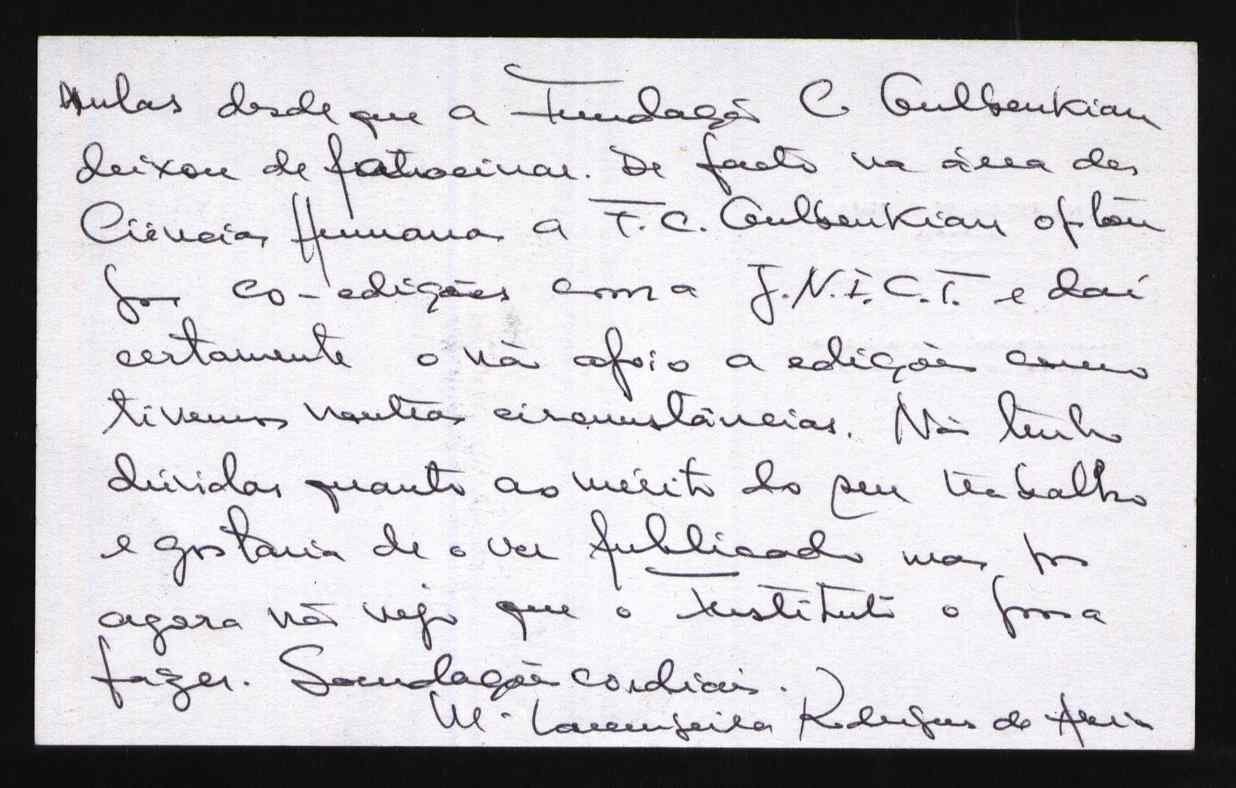 nulas desde que a Fundação C. Gulbenkian
deixou de patrocinar. De facto na área das
Ciências Humanas a F. C. Gulbenkian optou
por co-edições com a J.N.I.C.T. e daí
certamente o não apoio a edições como
tivemos noutras circunstâncias. Não tenho
dúvidas quanto ao mérito do seu trabalho
e gostaria de o ver publicado mas por
agora não vejo que o Instituto o possa
fazer. Saudações cordiais.
Mª Laranjeira Rodrigues de Areia